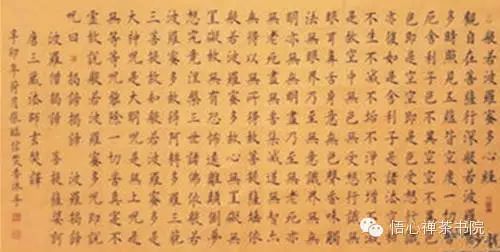 般若波羅蜜多心經
觀自在菩薩行深般若波羅蜜
多時照見五蘊皆空度一切苦
厄舍利子色不異空空不異色
色即是空空即是色受想行識
亦復如是舍利子是諸法空相
不生不滅不垢不淨不增不減
是故空中無色無受想行識無
眼耳鼻舌身意無色聲香味觸
法無眼界乃至無意識界無無
明亦無無明盡乃至無老死亦
無老死盡無苦集滅道無智亦
無得以無所得故菩提薩埵依
般若波羅蜜多故心無罣礙無
罣礙故無有恐怖遠離顛倒夢
想究竟涅槃三世諸佛依般若
波羅蜜多故得阿耨多羅三藐
三菩提故知般若波羅蜜多是
大神咒是大明咒是無上咒是
無等等咒能除一切苦真實不
虛故說般若波羅蜜多咒即說
咒曰 揭諦揭諦 波羅揭諦
波羅僧揭諦 菩提薩婆訶
唐三藏法師玄奘譯
辛卯年荷月張 焚香沐手
悟心禅茶书院